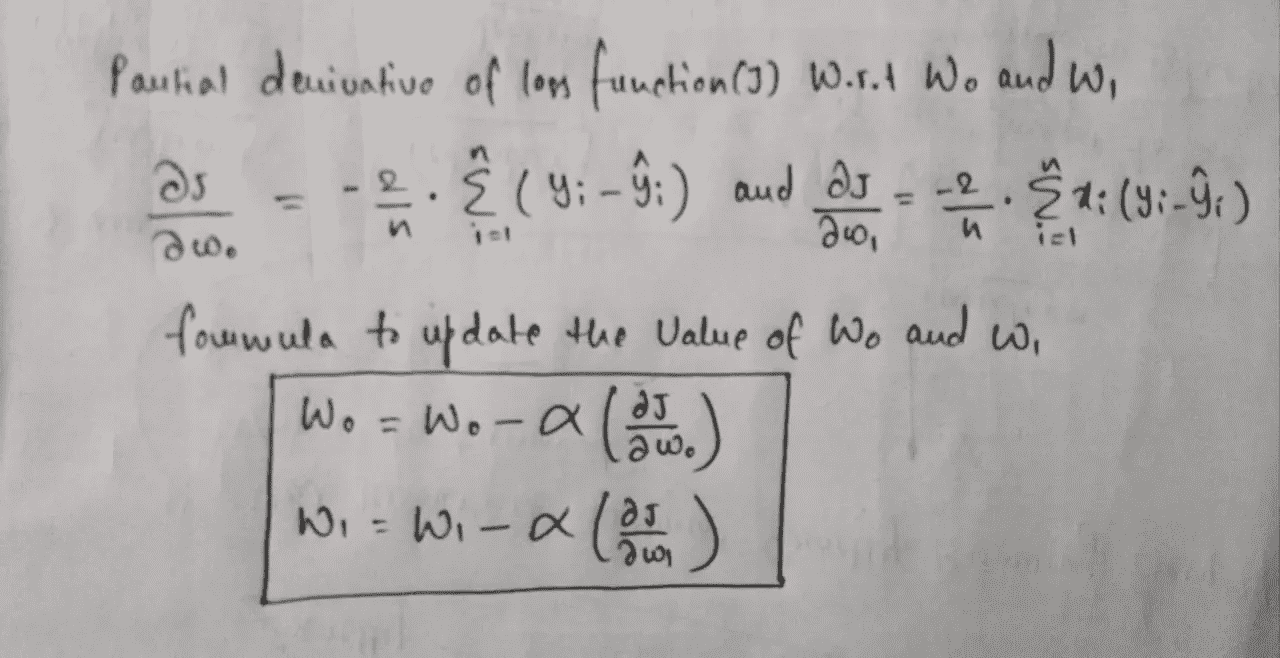 Partial derivative of loss function(J) W.r.t W₀ and W₁
∂J/∂w₀ = -2/n · Σᵢ₌₁ⁿ (yᵢ - ŷᵢ) and ∂J/∂w₁ = -2/n · Σᵢ₌₁ⁿ xᵢ (yᵢ - ŷᵢ)
formula to update the Value of W₀ and W₁
W₀ = W₀ - α (∂J/∂w₀)
W₁ = W₁ - α (∂J/∂w₁)